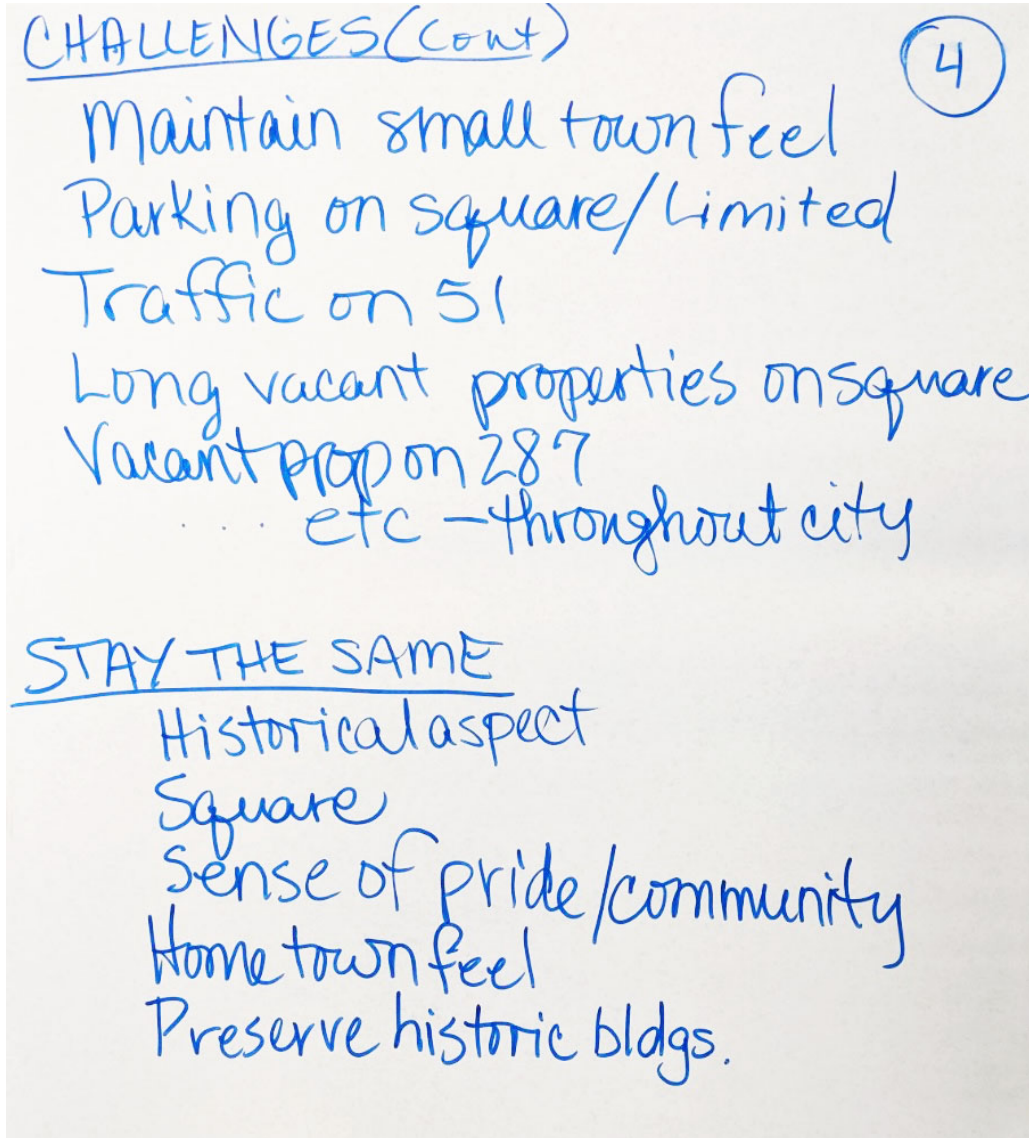 CHALLENGES (Cont)
4
Maintain small town feel
Parking on square/Limited
Traffic on 51
Long vacant properties on square
Vacant prop on 287
... etc - throughout city
STAY THE SAME
Historical aspect
Square
Sense of pride/community
Home town feel
Preserve historic bldgs.